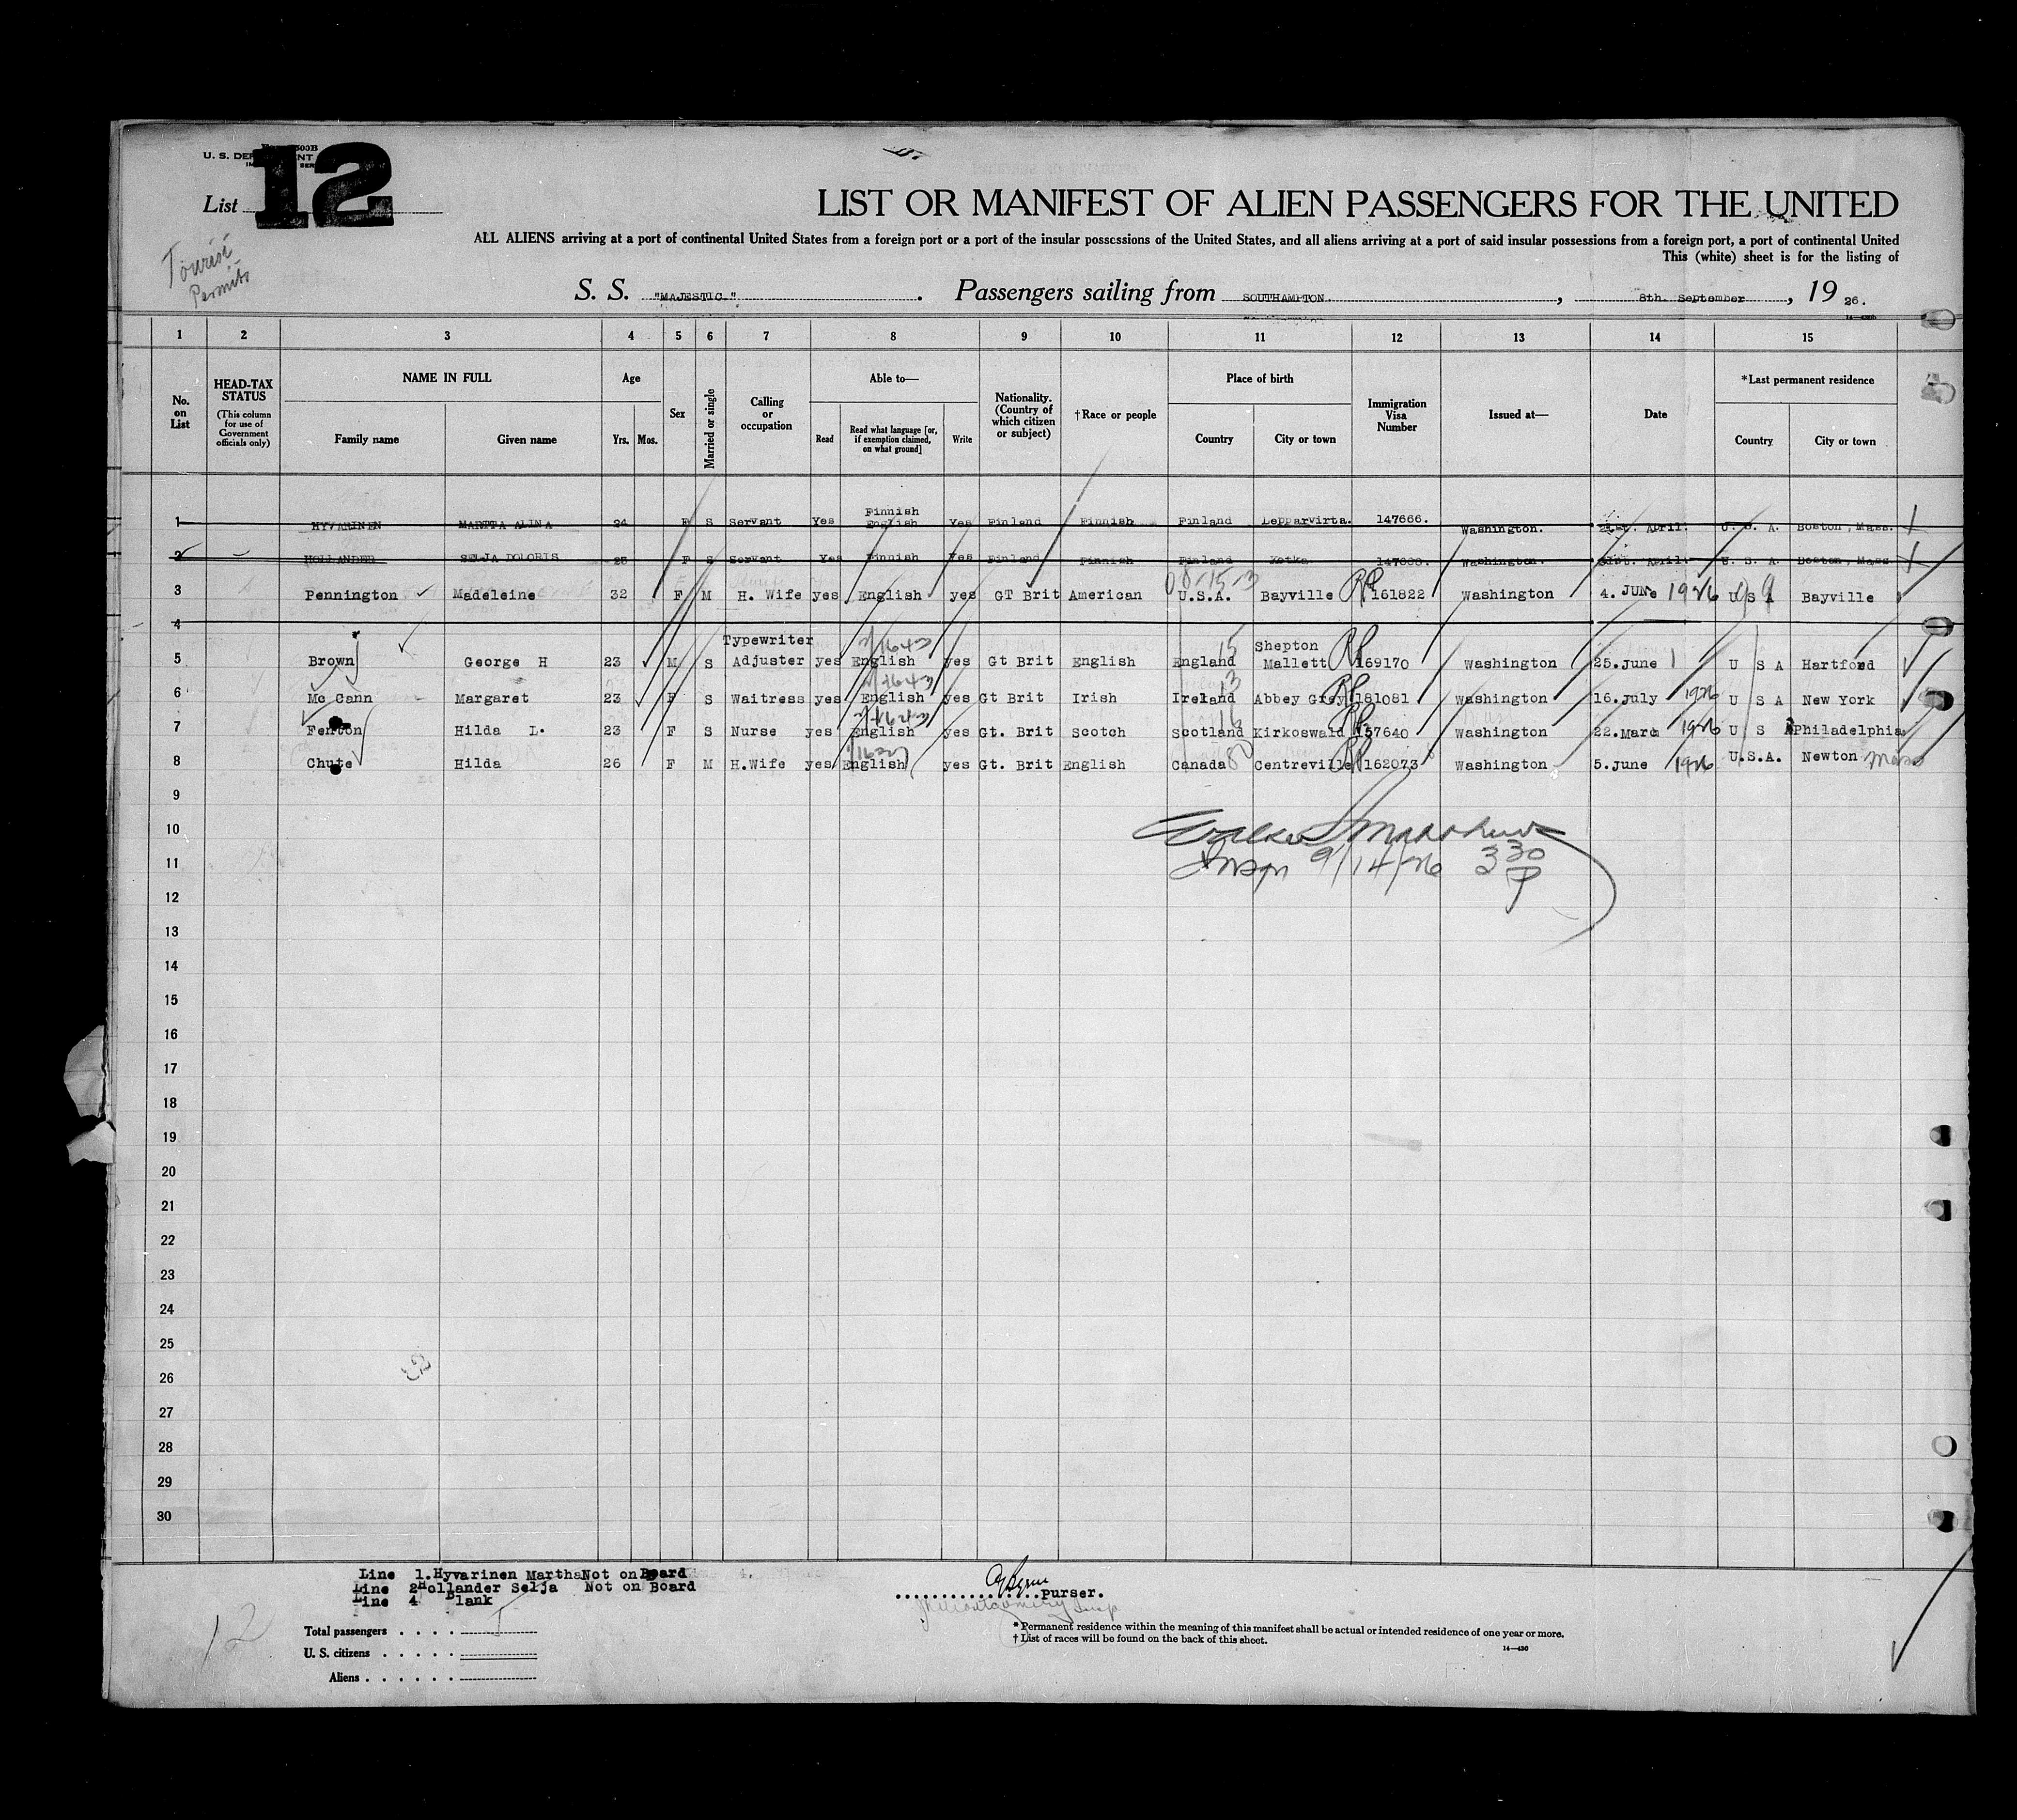 12
U. S. DEP
List
Tourist
Permits
LIST OR MANIFEST OF ALIEN PASSENGERS FOR THE UNITED
ALL ALIENS arriving at a port of continental United States from a foreign port or a port of the insular possessions of the United States, and all aliens arriving at a port of said insular possessions from a foreign port, a port of continental United
This (white) sheet is for the listing of
S. S. "MAJESTIC." . Passengers sailing from SOUTHAMPTON. , 8th. September , 19 26.
1 2 3 4 5 6 7 8 9 10 11 12 13 14 15
No. on List
HEAD-TAX STATUS (This column for use of Government officials only)
NAME IN FULL
Family name Given name
Age
Yrs. Mos.
Sex
Married or single
Calling or occupation
Able to—
Read Read what language [or, if exemption claimed, on what ground] Write
Nationality. (Country of which citizen or subject)
†Race or people
Place of birth
Country City or town
Immigration Visa Number
Issued at—
Date
*Last permanent residence
Country City or town
1 HYVARINEN MARTTA ALINA 24 F S Servant Yes Finnish English Yes Finland Finnish Finland Lepparvirta. 147666. Washington. 21st. April. U. S. A. Boston, Mass.
2 HOLLANDER SELJA DOLORIS 25 F S Servant Yes Finnish Yes Finland Finnish Finland Kotka Washington. 21st. April. U. S. A. Boston, Mass
3 Pennington Madeleine 32 F M H. Wife yes English yes GT Brit American U.S.A. Bayville 161822 Washington 4. JUNe 1926 U S A Bayville
4
5 Brown George H 23 M S Typewriter Adjuster yes English yes Gt Brit English England 15 Shepton Mallett 169170 Washington 25.June U S A Hartford
6 Mc Cann Margaret 23 F S Waitress yes English yes Gt Brit Irish Ireland 13 Abbey Grey 181081 Washington 16.July 1926 U S A New York
7 Fenton Hilda L. 23 F S Nurse yes English yes Gt. Brit Scotch Scotland Kirkoswald 137640 Washington 22.Marc 1926 U S A Philadelphia
8 Chute Hilda 26 F M H.Wife yes English yes Gt. Brit English Canada 8 Centreville 162073 Washington 5.June 1926 U.S.A. Newton Mass
9
10
11 Insp 9/14/26 3 30 P
12
13
14
15
16
17
18
19
20
21
22
23
24
25
26
27
28
29
30
Line 1.Hyvarinen MarthaNot on Board
Line 2Hollander Selja Not on Board
Line 4 Blank
purser.
12
Total passengers . . . .
U. S. citizens . . . . .
Aliens . . . . . .
* Permanent residence within the meaning of this manifest shall be actual or intended residence of one year or more.
† List of races will be found on the back of this sheet.
14—430